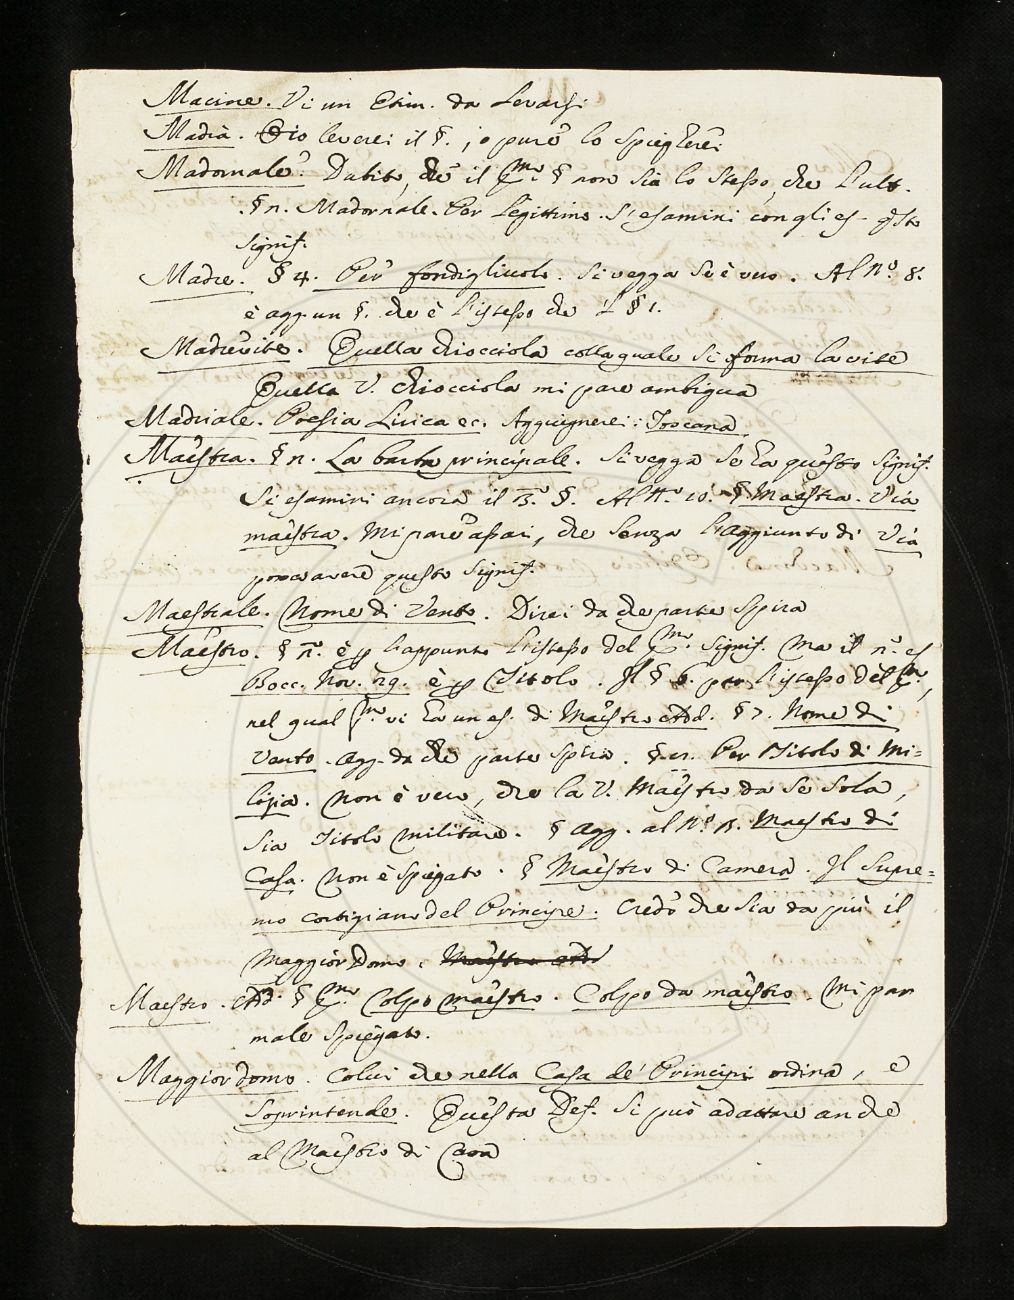 Macine. Vi è un Etim. da levarsi
Madia. Io leverei il §., o pure lo spiegherei
Madornale. Dubito, che il pmo. § non sia lo stesso, che l'ult.
§ n. Madornale. Per legittimo. Si esamini con gli es. qsto
signif.
Madre. § 4. Per fondigliuolo. Si vegga se è vero. Al No. 8.
è agg. un §. che è l'istesso che l § 1.
Madrevite. Quella chiocciola colla quale si forma la vite
Quella V. chiocciola mi pare ambigua
Madriale. Poesia Lirica ec. Aggiugnerei: Toscana
Maestra. § n. La barba principale. Si vegga se ha questo signif.
Si esamini ancora il 3.o §. Al No. 10. § Maestra. Via
maestra. Mi pare assai, che senza l'aggiunto di Via
possa avere questo signif.
Maestrale. Nome di Vento. Direi da che parte spira
Maestro. § no. è p l'appunto l'istesso del pmo. signif. Ma il no. es
Bocc. Nov. 79. è p Titolo. Il § 6. pare l'istesso del pmo,
nel qual pmo. vi ha un es. di Maestro Add. § 7. Nome di
Vento. agg. da che parte spira. § 11. Per Titolo di Mi=
lizia. Non è vero, che la V. Maestro da se sola,
sia Titolo militare. § Agg. al No. Maestro di
Casa. Non è spiegato. § Maestro di Camera. Il supre=
mo cortigiano del Principe. Credo che sia da più il
Maggiordomo. Maestro Add
Maestro. Add. § pmo. Colpo maestro. Colpo da maestro. Mi par
male spiegato.
Maggiordomo. Colui che nella Casa de' Principi ordina, e
soprintende. Questa Def. si può adattare anche
al Maestro di Casa